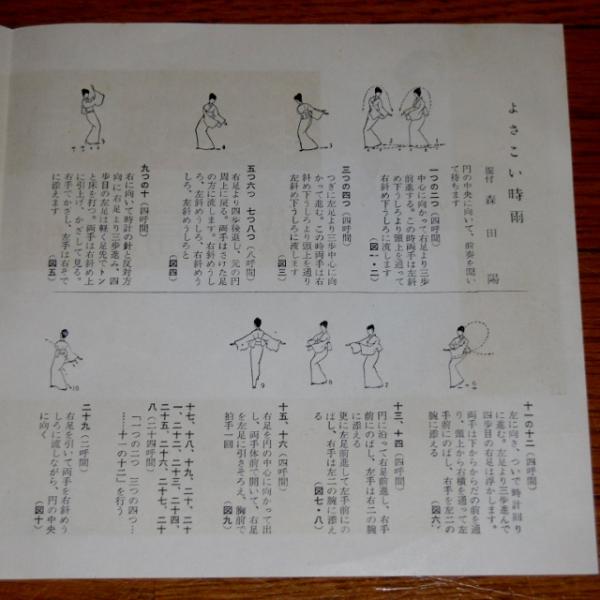 よさこい時雨
振付 森田陽
円の中央に向いて、前奏を聞い
て待ちます
一つの二つ（四呼間）
中心に向かって右足より三歩
前進する。この時両手は左斜
め下うしろより頭上を通って
右斜め下うしろに流します
（図一・二）
三つの四つ（四呼間）
つぎに左足より三歩中心に向
かって進む。この時両手は右
斜め下うしろより頭上を通り
左斜め下うしろに流します
（図三）
五つ六つ 七つ八つ（八呼間）
右足より四歩後退し、元の円
周上に戻る。両手はさげた足
の方に流します。右斜めうし
ろ、左斜めうしろ、右斜めう
しろ、左斜めうしろと
（図四）
九つの十（四呼間）
右に向いて時計の針と反対方
向に右足より三歩進み、四
歩目の左足は軽く足先でトン
と床を打つ。両手は右斜め上
に引上げ、かざして見る。
右手でかさし、左手は右そで
に添えます
（図五）
十一の十二（四呼間）
左に向き、ついで時計回り
に進む。左足より三歩進んで
四歩目の右足は浮かします。
両手は下からからだの前を通
り、頭上から右横を通って左
手前にのばし、右手を左二の
腕に添える
（図六）
十三、十四（四呼間）
円に沿って右足前進し、右手
前にのばし、左手は右二の腕
に添える
更に左足前進して左手前にの
ばし、右手は左二の腕に添え
る
（図七・八）
十五、十六（四呼間）
右足を円の中心に向かって出
し、両手体前で開いて、右足
を左足に引きそろえ、胸前で
拍手一回
（図九）
十七、十八、十九、二十、二十
一、二十二、二十三、二十四、
二十五、二十六、二十七、二十
八（二十四呼間）
「一つの二つ 三つの四つ…
……十一の十二」を行う
二十九（二呼間）
右足を引いて両手を右斜めう
しろに流しながら、円の中央
に向く
（図十）